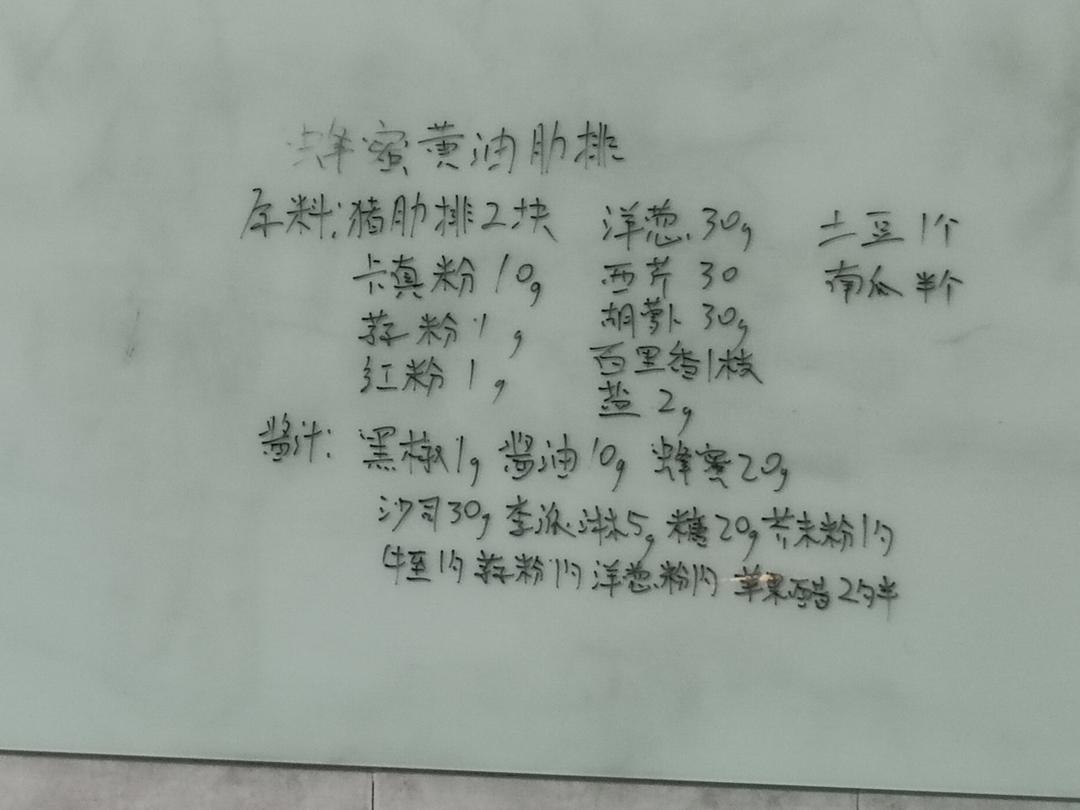 蜂蜜黄油肋排
原料:猪肋排2块 洋葱30g 土豆1个
卡真粉10g 西芹30 南瓜半个
蒜粉1g 胡萝卜30g
红粉1g 百里香1枝
盐2g
酱汁:黑椒1g 酱油10g 蜂蜜20g
沙司30g 李派淋5g 糖20g 芥末粉1勺
牛至1勺 蒜粉1勺 洋葱粉1勺 苹果醋2勺半